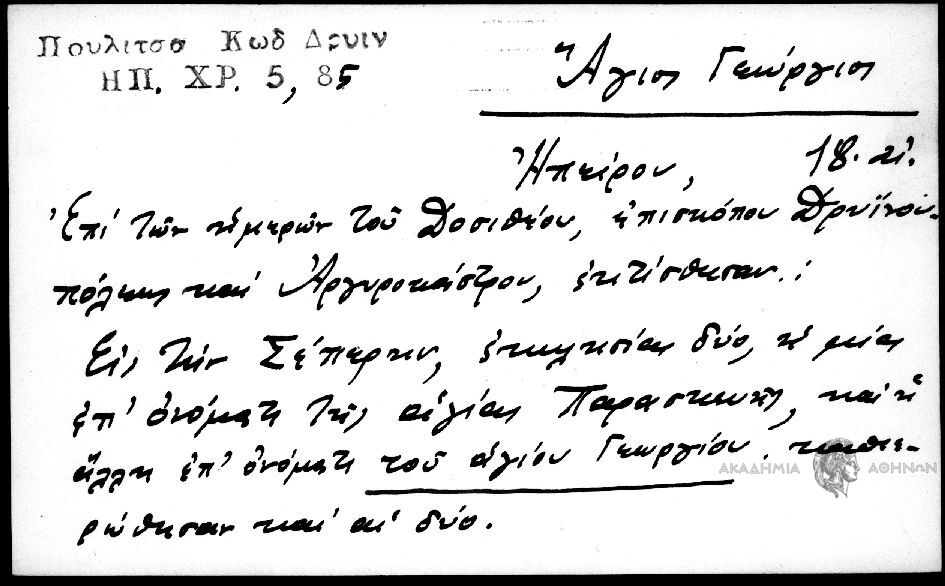 Πουλιτσα Κωδ Δρυιν
ΗΠ. ΧΡ. 5, 85
Ἅγιος Γεώργιος
Ἠπείρου, 18. αἰ.
Ἐπί τῶν ἡμερῶν τοῦ Δοσιθέου, ἐπισκόπου Δρυϊνου-
πόλεως καί Ἀργυροκάστρου, ἐκτίσθησαν.:
Εἰς τήν Σέπερην, ἐκκλησίαι δύο, ἡ μία
ἐπ' ὀνόματι τῆς ἁγίας Παρασκευῆς, καί ἡ
ἄλλη ἐπ' ὀνόματι τοῦ ἁγίου Γεωργίου. καθιε-
ρώθησαν καί αἱ δύο.
ΑΚΑΔΗΜΙΑ ΑΘΗΝΩΝ